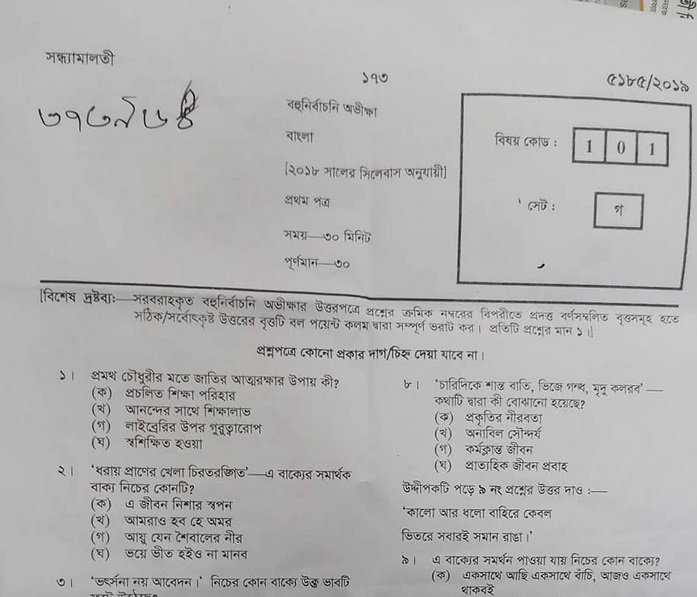 সন্ধ্যামালতী
১৭৩
৫১৮৫/২০১৯
বহুনির্বাচনি অভীক্ষা
বাংলা
[২০১৮ সালের সিলেবাস অনুযায়ী]
প্রথম পত্র
সময়—৩০ মিনিট
পূর্ণমান—৩০
বিষয় কোড : 1 0 1
সেট : গ
[বিশেষ দ্রষ্টব্য:—সরবরাহকৃত বহুনির্বাচনি অভীক্ষার উত্তরপত্রে প্রশ্নের ক্রমিক নম্বরের বিপরীতে প্রদত্ত বর্ণসংবলিত বৃত্তসমূহ হতে
সঠিক/সর্বোৎকৃষ্ট উত্তরের বৃত্তটি বল পয়েন্ট কলম দ্বারা সম্পূর্ণ ভরাট কর। প্রতিটি প্রশ্নের মান ১।]
প্রশ্নপত্রে কোনো প্রকার দাগ/চিহ্ন দেয়া যাবে না।
১। প্রমথ চৌধুরীর মতে জাতির আত্মরক্ষার উপায় কী?
(ক) প্রচলিত শিক্ষা পরিহার
(খ) আনন্দের সাথে শিক্ষালাভ
(গ) লাইব্রেরির উপর গুরুত্বারোপ
(ঘ) স্বশিক্ষিত হওয়া
২। 'ধরায় প্রাণের খেলা চিরতরঙ্গিত'—এ বাক্যের সমার্থক
বাক্য নিচের কোনটি?
(ক) এ জীবন নিশার স্বপন
(খ) আমরাও হব হে অমর
(গ) আয়ু যেন শৈবালের নীর
(ঘ) ভয়ে ভীত হইও না মানব
৩। 'ভর্ৎসনা নয় আবেদন।' নিচের কোন বাক্যে উক্ত ভাবটি
৮। 'চারিদিকে শান্ত বাতি, ভিজে গন্ধ, মৃদু কলরব' —
কথাটি দ্বারা কী বোঝানো হয়েছে?
(ক) প্রকৃতির নীরবতা
(খ) অনাবিল সৌন্দর্য
(গ) কর্মক্লান্ত জীবন
(ঘ) প্রাত্যহিক জীবন প্রবাহ
উদ্দীপকটি পড়ে ৯ নং প্রশ্নের উত্তর দাও :—
'কালো আর ধলো বাহিরে কেবল
ভিতরে সবারই সমান রাঙা।'
৯। এ বাক্যের সমর্থন পাওয়া যায় নিচের কোন বাক্যে?
(ক) একসাথে আছি একসাথে বাঁচি, আজও একসাথে
থাকবই